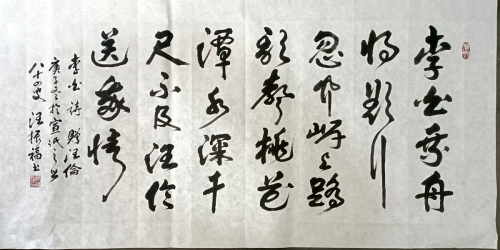 李白乘舟
将欲行
忽闻岸上踏
歌聲桃花
潭水深千
尺不及汪倫
送我情
李白诗赠汪倫
庚子冬於宣纸之乡
八十四叟 汪振福书